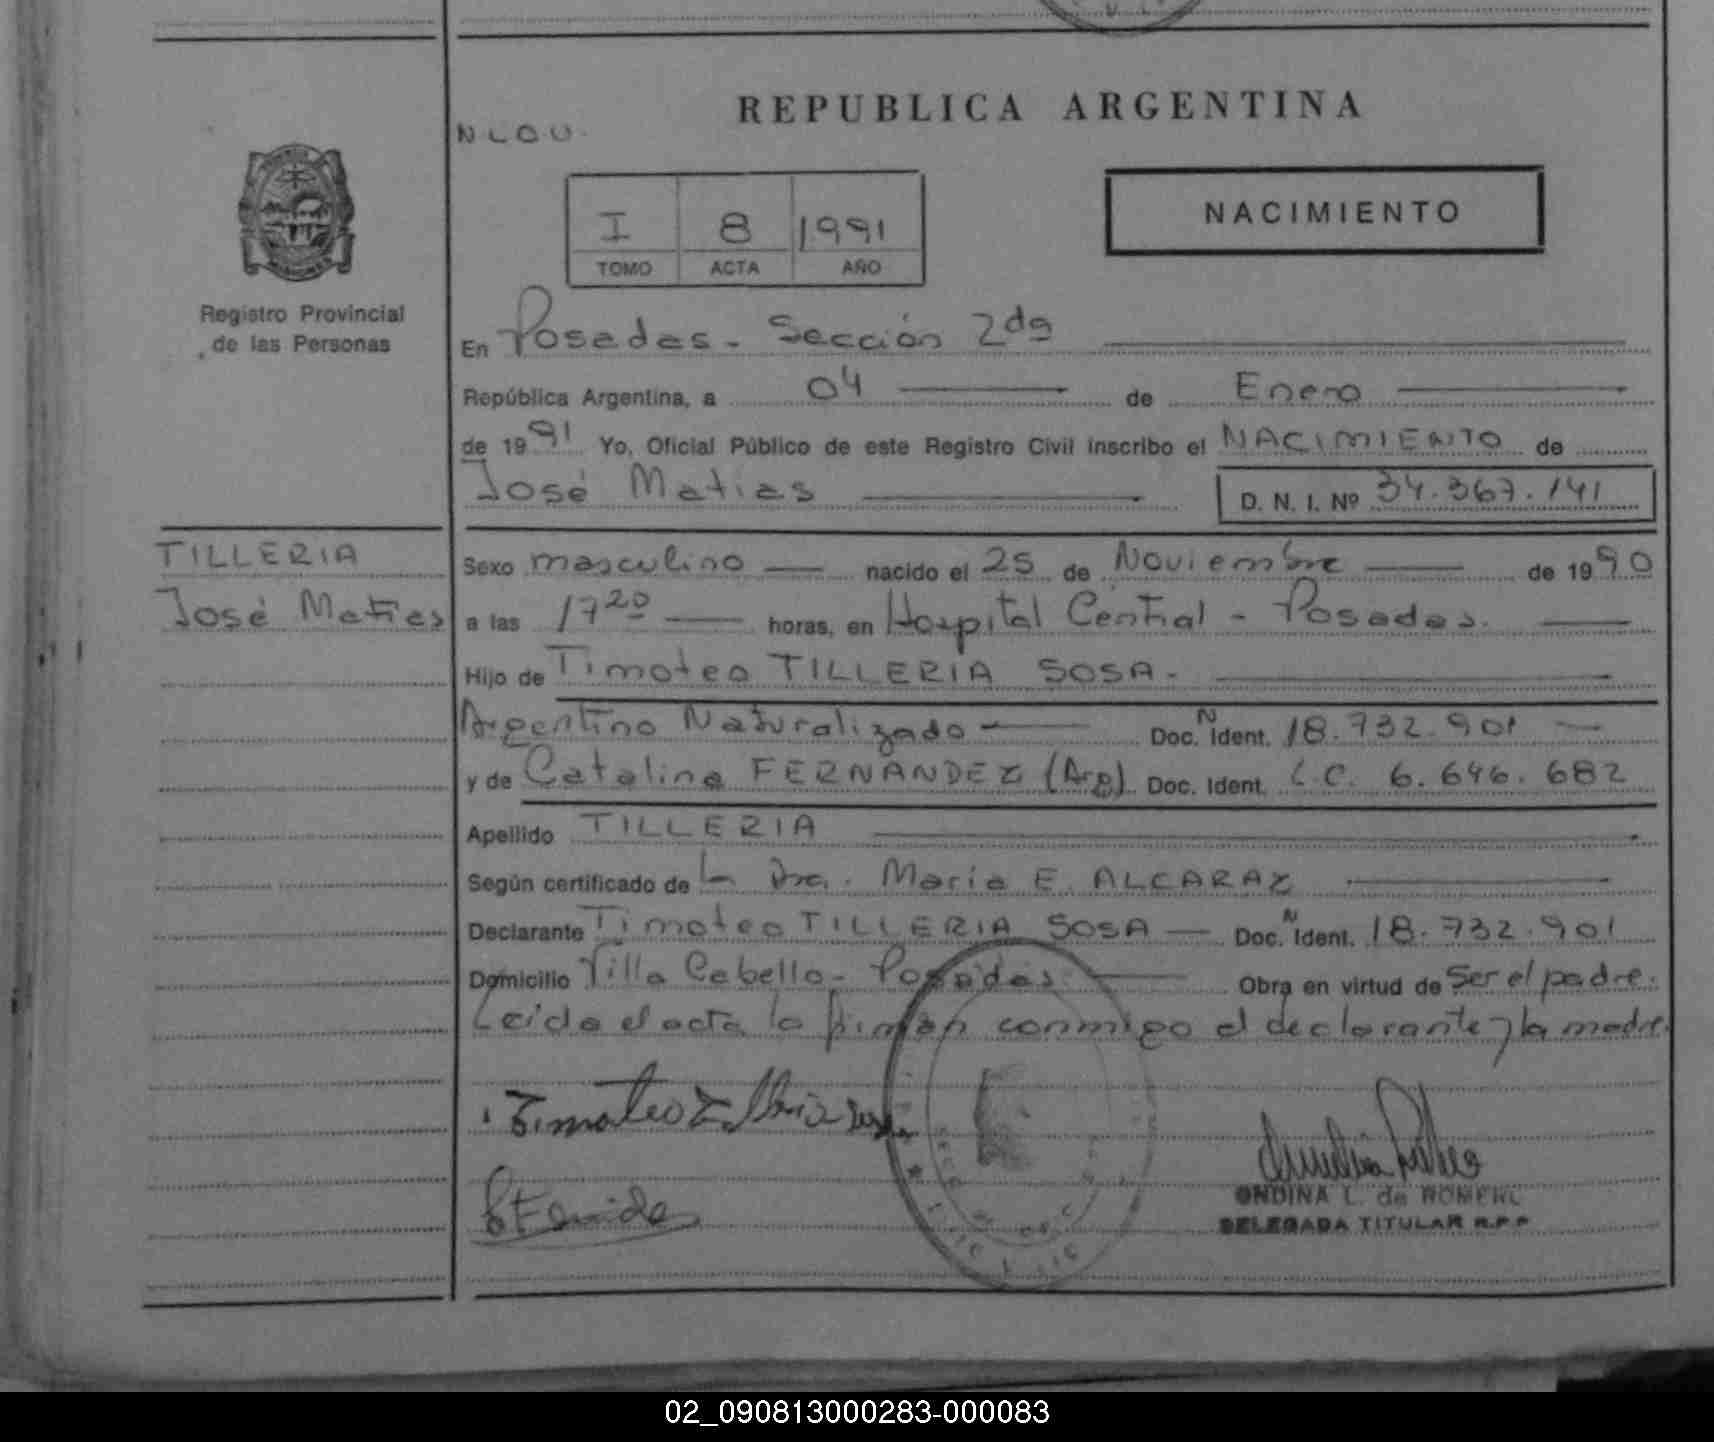 REPUBLICA ARGENTINA
N L O U.
I 8 1991
TOMO ACTA AÑO
NACIMIENTO
Registro Provincial
de las Personas
En Posadas - Sección 2da
República Argentina, a 04 de Enero
de 1991 Yo, Oficial Público de este Registro Civil inscribo el NACIMIENTO de
José Matias D. N. I. Nº 34.367.141
TILLERIA
José Matias
Sexo masculino nacido el 25 de Noviembre de 1990
a las 17 20 horas, en Hospital Central - Posadas.
Hijo de Timoteo TILLERIA SOSA.
Argentino Naturalizado Doc. N Ident. 18.732.901
y de Catalina FERNANDEZ (Arg) Doc. Ident. L.C. 6.646.682
Apellido TILLERIA
Según certificado de la Dra. Maria E. ALCARAZ
Declarante Timoteo TILLERIA SOSA Doc. N Ident. 18.732.901
Domicilio Villa Cabello - Posadas Obra en virtud de ser el padre.
Leida el acta la firman conmigo el declarante y la madre.
Timoteo Tilleria
ONDINA L. de ROMERO
DELEGADA TITULAR R.P.P
02_090813000283-000083